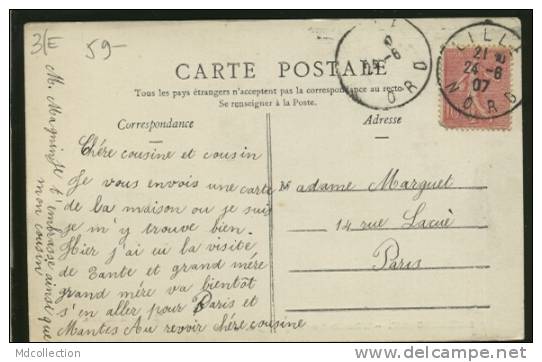 3/E 59-
CARTE POSTALE
Tous les pays étrangers n'acceptent pas la correspondance au recto
Se renseigner à la Poste.
Correspondance
Adresse
LILLE
21
24 -6
07
NORD
-6
ORD
Chére cousine et cousin
Je vous envois une carte
de la maison ou je suis
je m'y trouve bien.
Hier j'ai eu la visite
de Tante et grand mére
grand mére va bientôt
s'en aller pour Paris et
Mantes Au revoir chére cousine
je t'embrasse ainsi que
mon cousin
M.
Madame Marguet
14 rue
Paris
MdCollection
http://www.delcampe.net